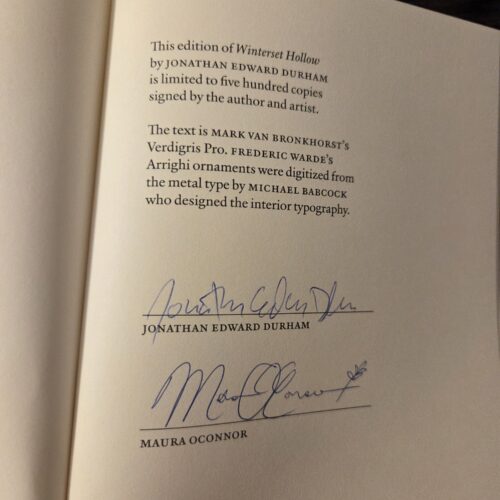 This edition of Winterset Hollow
by JONATHAN EDWARD DURHAM
is limited to five hundred copies
signed by the author and artist.
The text is MARK VAN BRONKHORST's
Verdigris Pro. FREDERIC WARDE's
Arrighi ornaments were digitized from
the metal type by MICHAEL BABCOCK
who designed the interior typography.
Jonathan Edward Durham
JONATHAN EDWARD DURHAM
Maura OConnor
MAURA OCONNOR